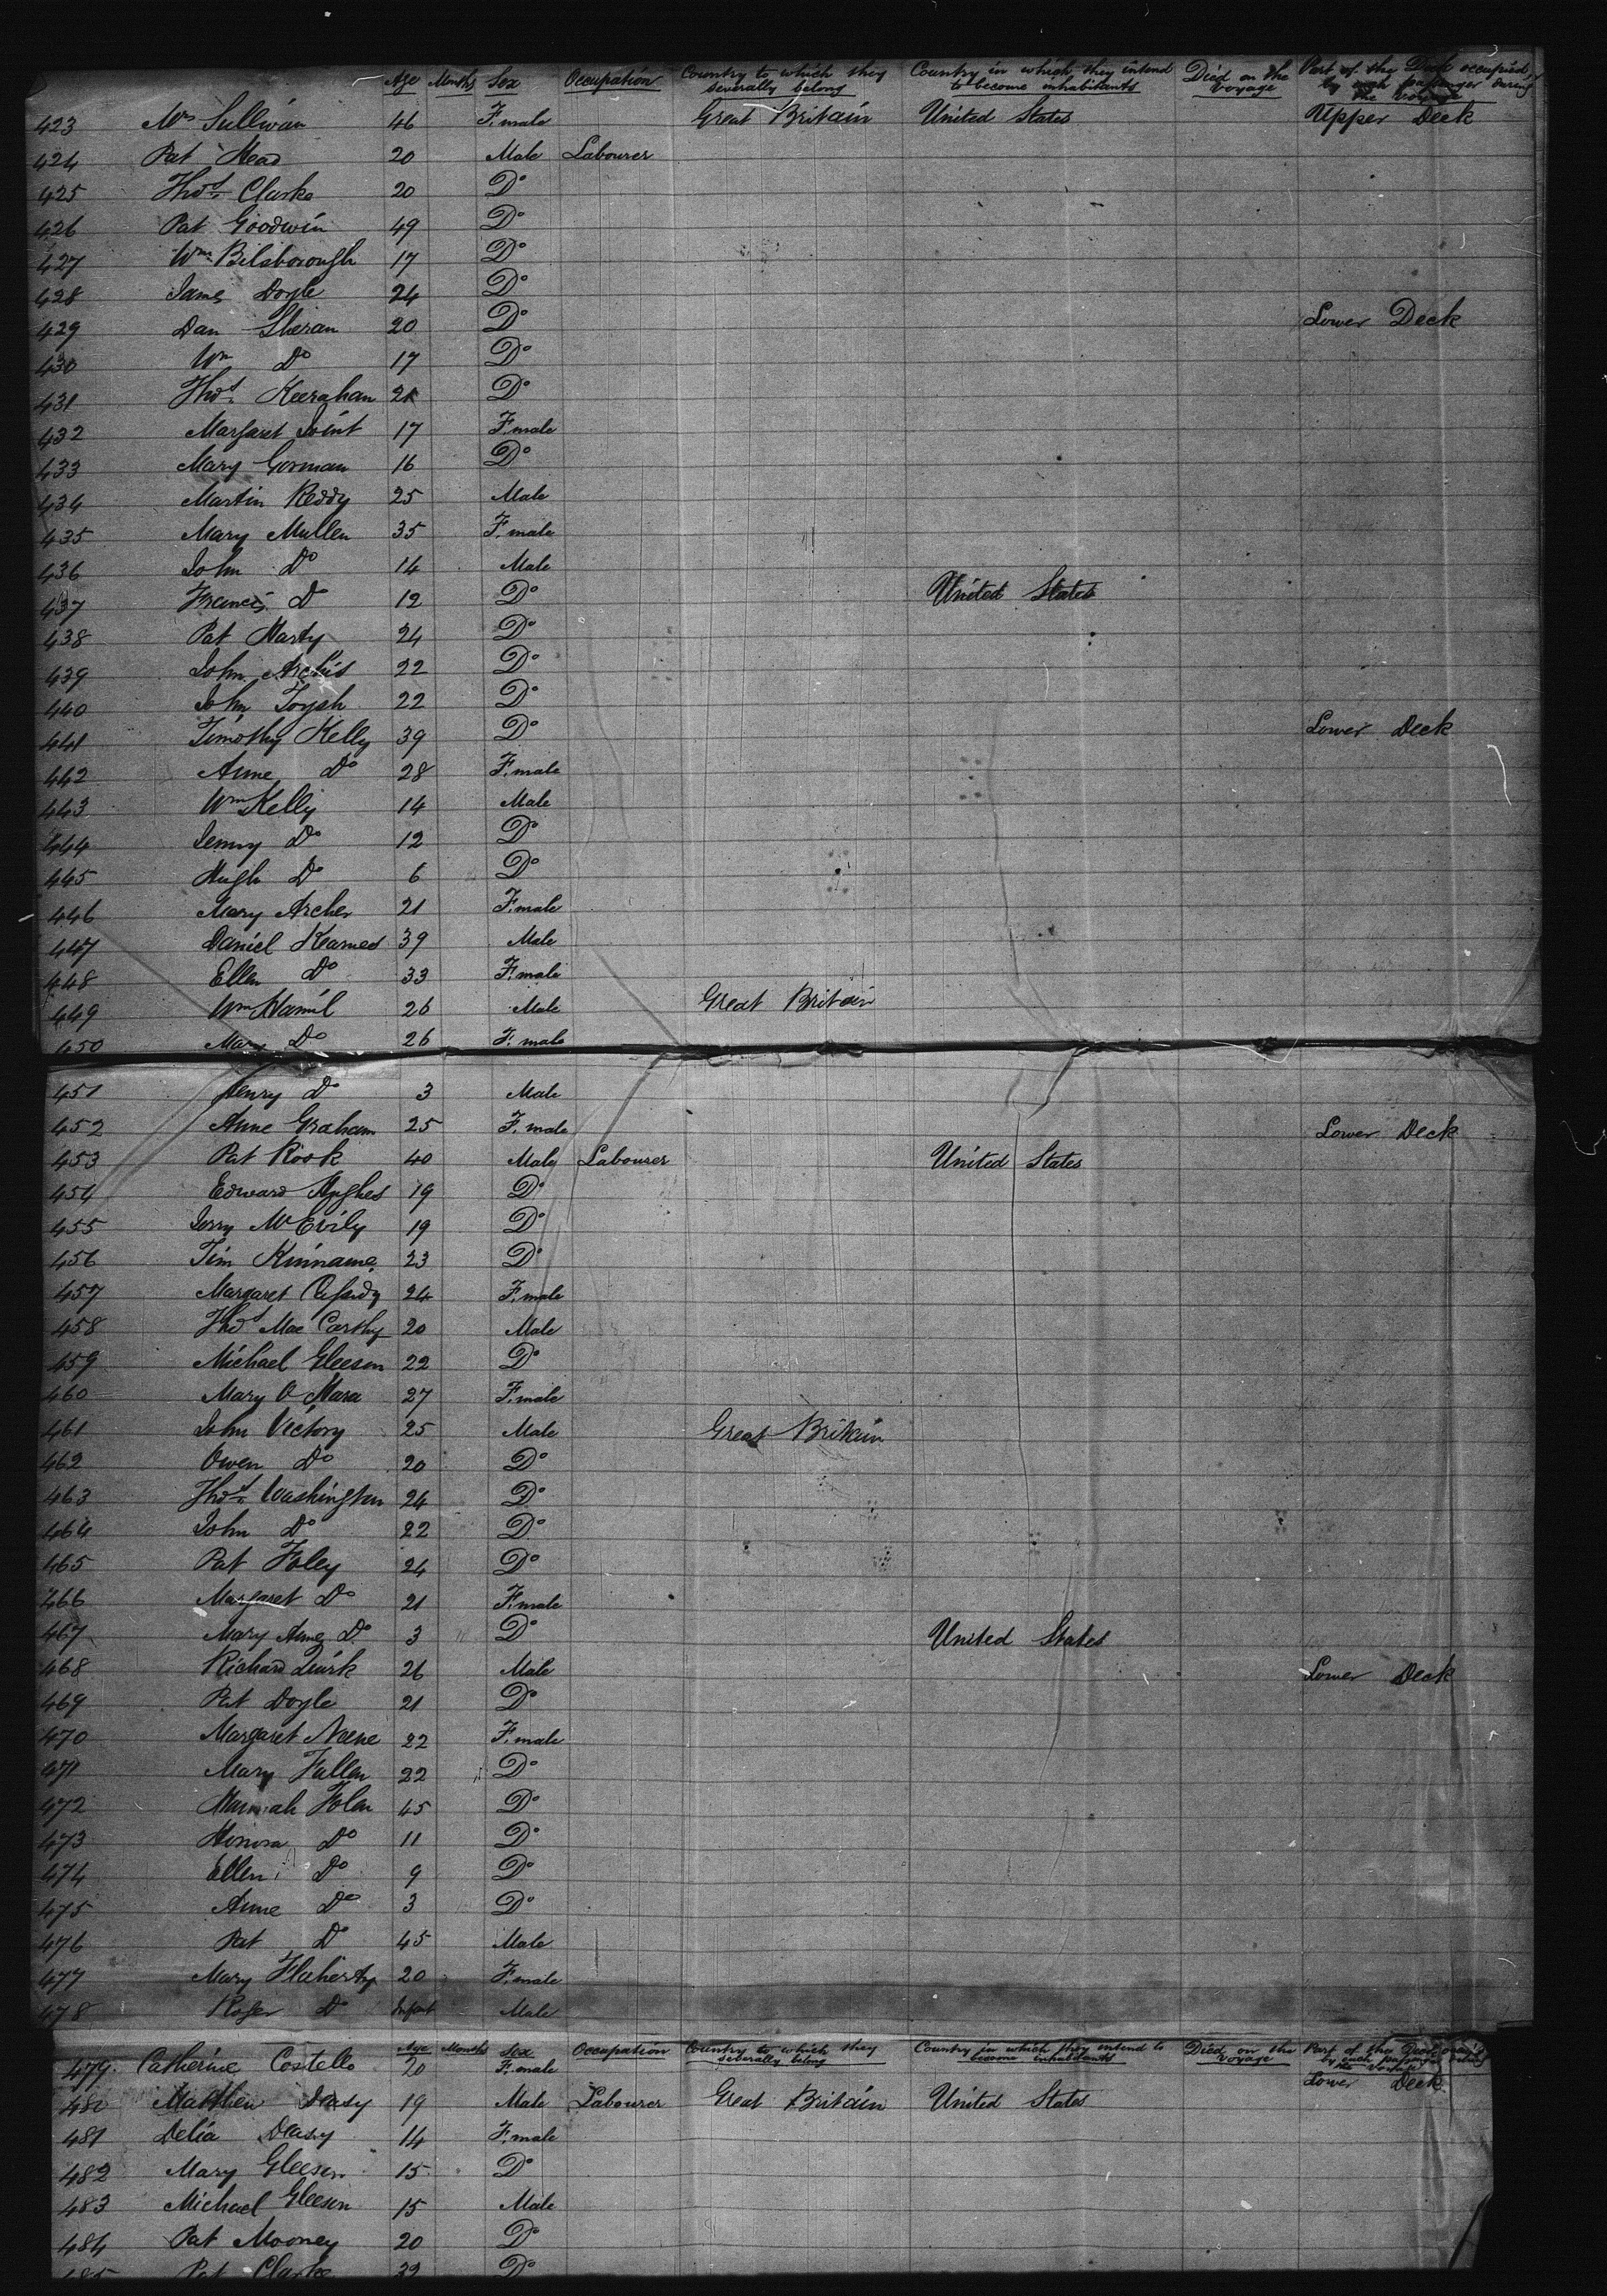 Age Months Sex Occupation Country to which they severally belong Country in which they intend to become inhabitants Died on the Voyage Part of the Deck occupied by each passenger during the voyage
423 Mrs Sullivan 46 F.male Great Britain United States Upper Deck
424 Pat Head 20 Male Labourer
425 Thos Clarke 20 Do
426 Pat Goodwin 49 Do
427 Wm Bilsborough 17 Do
428 James Doyle 24 Do
429 Dan Sheran 20 Do Lower Deck
430 Wm Do 17 Do
431 Thos Keeraghan Do
432 Margaret Joint 17 F.male
433 Mary Gorman 16 Do
434 Martin Reddy 25 Male
435 Mary Mullen 35 F.male
436 John Do 14 Male
437 Francis Do 12 Do United States
438 Pat Harty 24 Do
439 John 22 Do
440 John 22 Do
441 Timothy Kelly 39 Do Lower Deck
442 Anne Do 28 F.male
443 Wm Kelly 14 Male
444 Do 12 Do
445 Hugh Do 6 Do
446 Mary Archer 21 F.male
447 Daniel Kearnes 39 Male
448 Ellen Do 33 F.male
449 Wm Hamil 26 Male Great Britain
450 Mary Do 26 F.male
451 Henry Do 3 Male
452 Anne Graham 25 F.male Lower Deck
453 Pat Rook 40 Male Labourer United States
454 Edward Hughes 19 Do
455 Jerry McEvily 19 Do
456 Tim Kinname 23 Do
457 Margaret 24 F.male
458 Thos Mac Carthy 20 Male
459 Michael Gleeson 22 Do
460 Mary O Mara 27 F.male
461 John Victory 25 Male Great Britain
462 Owen Do 20 Do
463 Thos Washington 24 Do
464 John Do 22 Do
465 Pat Foley 24 Do
466 Margaret Do 21 F.male
467 Mary Anne Do 3 Do United States
468 Richard Quirk 26 Male Lower Deck
469 Pat Doyle 21 Do
470 Margaret Neene 22 F.male
471 Mary Fallen 22 Do
472 Hannah Folan 45 Do
473 Honora Do 11 Do
474 Ellen Do 9 Do
475 Anne Do 3 Do
476 Pat Do 45 Male
477 Mary Flaherty 20 F.male
478 Roger Do Infant Male
Age Months Sex Occupation Country to which they severally belong Country in which they intend to become inhabitants Died on the Voyage Part of the Deck
479. Catherine Costello 20 F.male Lower Deck
480 Matthew Deasy 19 Male Labourer Great Britain United States
481 Delia Deasy 14 F.male
482 Mary Gleeson 15 Do
483 Michael Gleeson 15 Male
484 Pat Mooney 20 Do
485 Pat Clarke Do